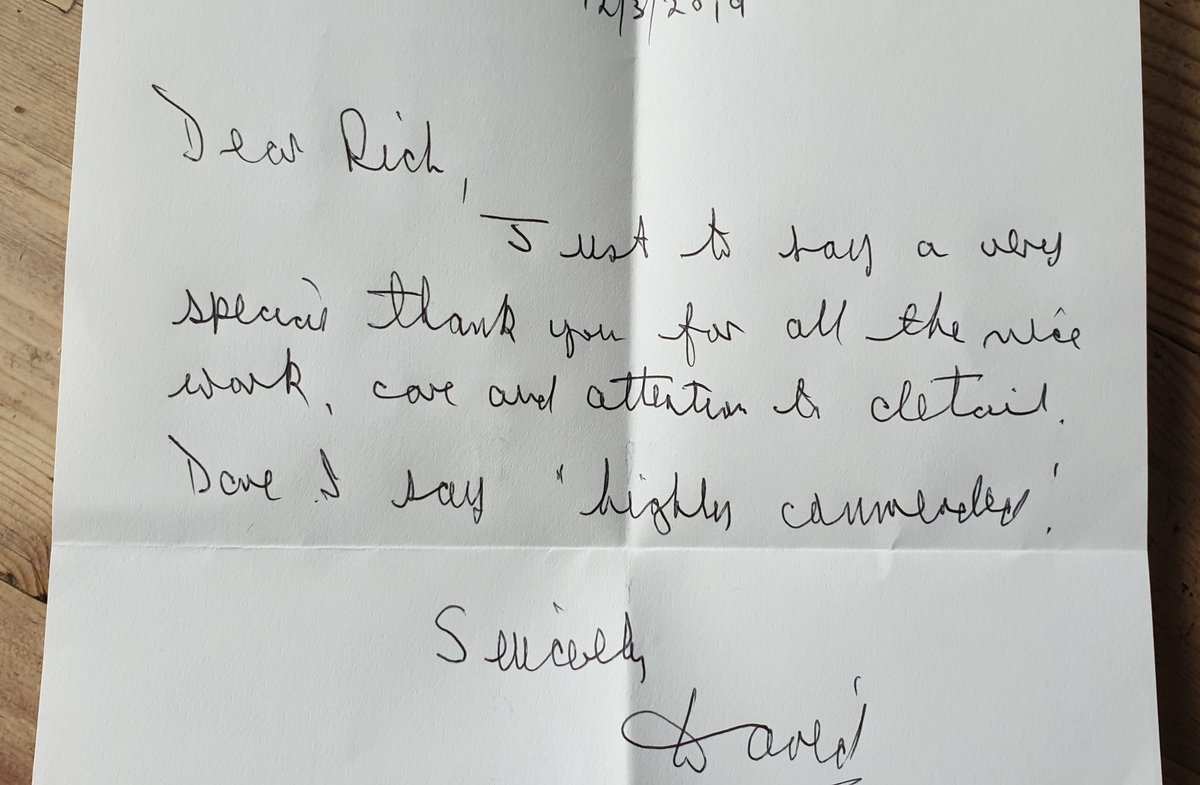 12/3/2019
Dear Rich,
Just to say a very
special thank you for all the nice
work, care and attention to detail.
Dare I say "highly commended".
Sincerely
David